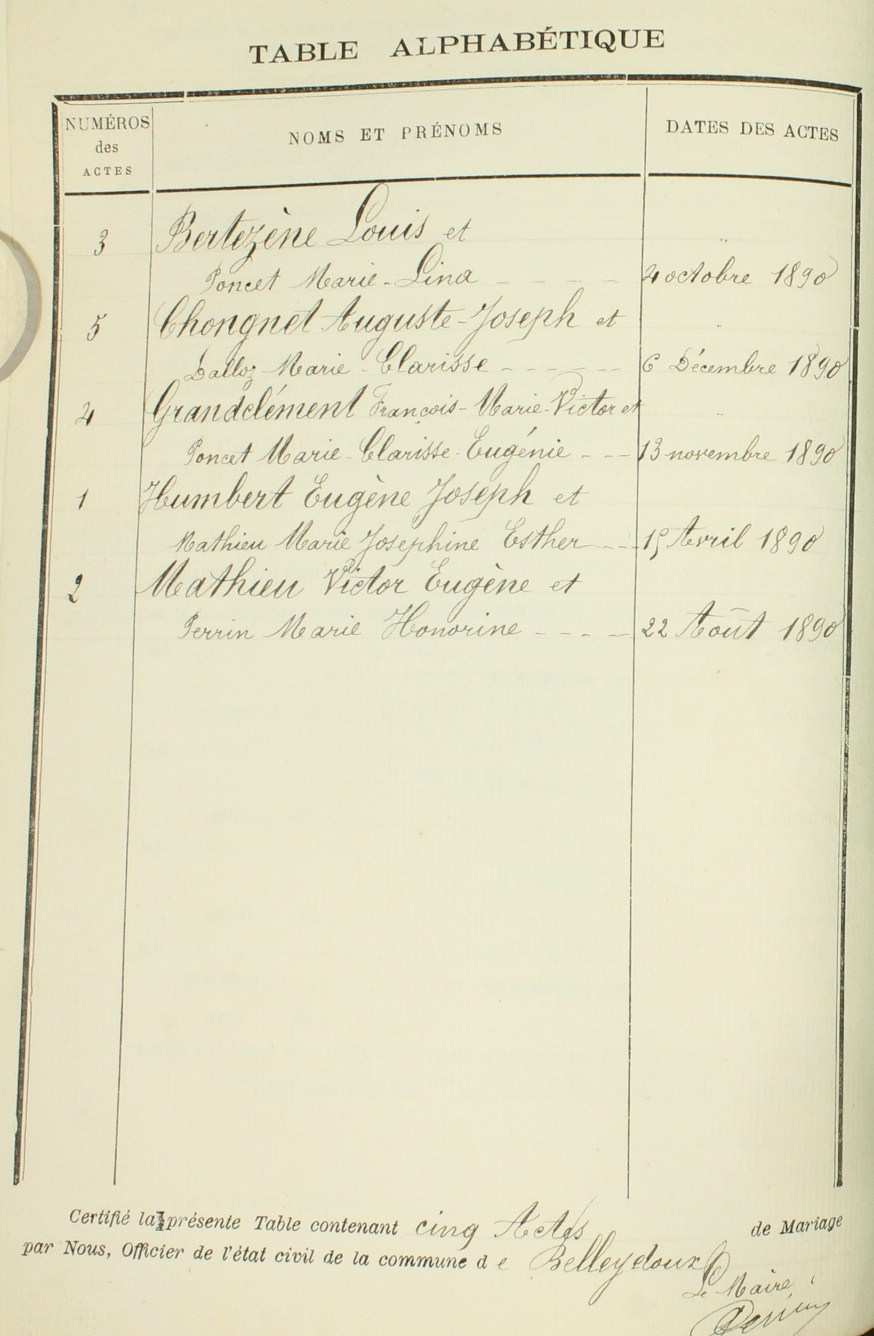 TABLE ALPHABÉTIQUE
NUMÉROS des ACTES
NOMS ET PRÉNOMS
DATES DES ACTES
3 Bertezène Louis et
Poncet Marie-Lina 4 octobre 1890
5 Chongnet Auguste-Joseph et
Dalloz Marie-Clarisse 6 Décembre 1890
4 Grandclément François-Marie-Victor et
Poncet Marie-Clarisse-Eugénie 13 novembre 1890
1 Humbert Eugène Joseph et
Mathieu Marie Josephine Esther 15 Avril 1890
2 Mathieu Victor Eugène et
Perrin Marie Honorine 22 Août 1890
Certifié la présente Table contenant cinq Actes de Mariage
par Nous, Officier de l'état civil de la commune de Belleydoux
Le Maire,